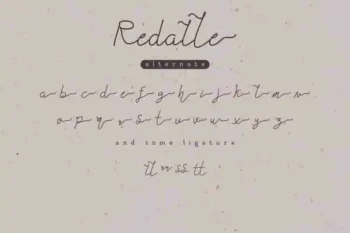 Redatte
alternate
a b c d e f g h i j k l m n
o p q r s t u v w x y z
and some ligature
tl or ss tt